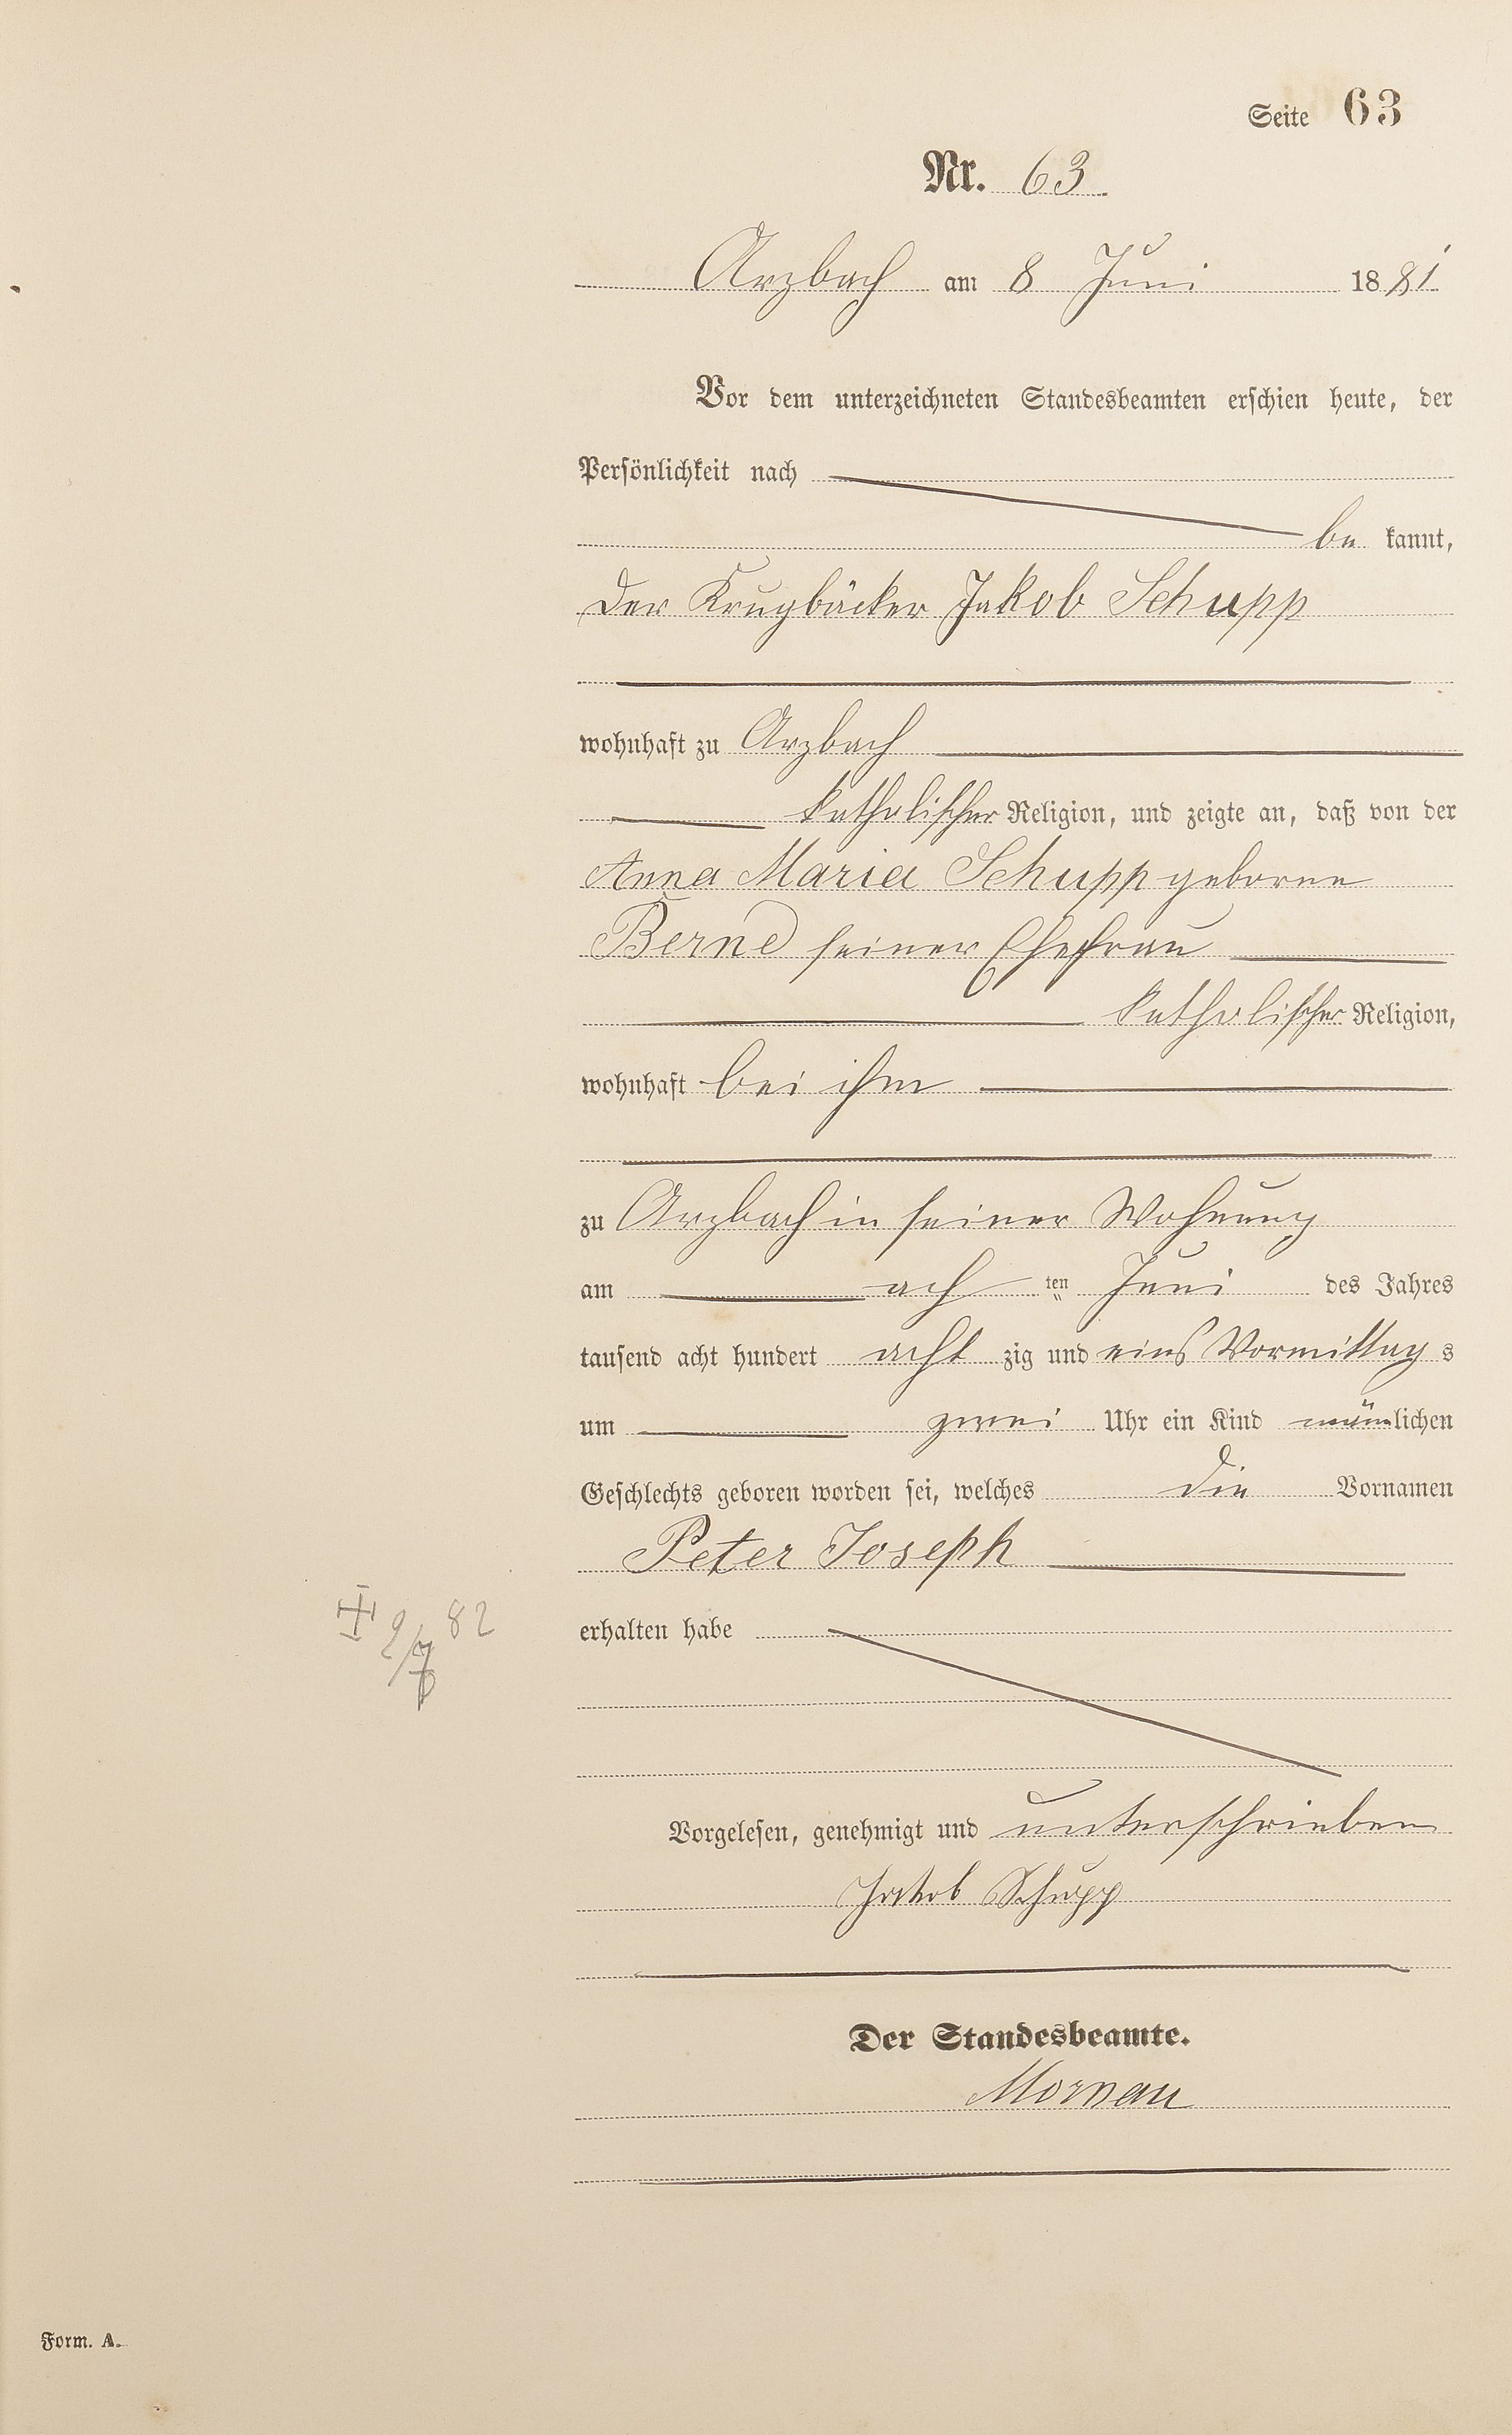 Seite 63
Nr. 63.
Arzbach am 8 Juni 1881
Vor dem unterzeichneten Standesbeamten erschien heute, der
Persönlichkeit nach
be kannt,
der Krugbäcker Jakob Schupp
wohnhaft zu Arzbach
katholischer Religion, und zeigte an, daß von der
Anna Maria Schupp geborne
Bernd seiner Ehefrau
katholischer Religion,
wohnhaft bei ihm
zu Arzbach in seiner Wohnung
am ach ten Juni des Jahres
tausend acht hundert acht zig und eins Vormittag s
um zwei Uhr ein Kind männlichen
Geschlechts geboren worden sei, welches die Vornamen
Peter Joseph
erhalten habe
2/7 82
Vorgelesen, genehmigt und unterschrieben
Jakob Schupp
Der Standesbeamte.
Mornau
Form. A.